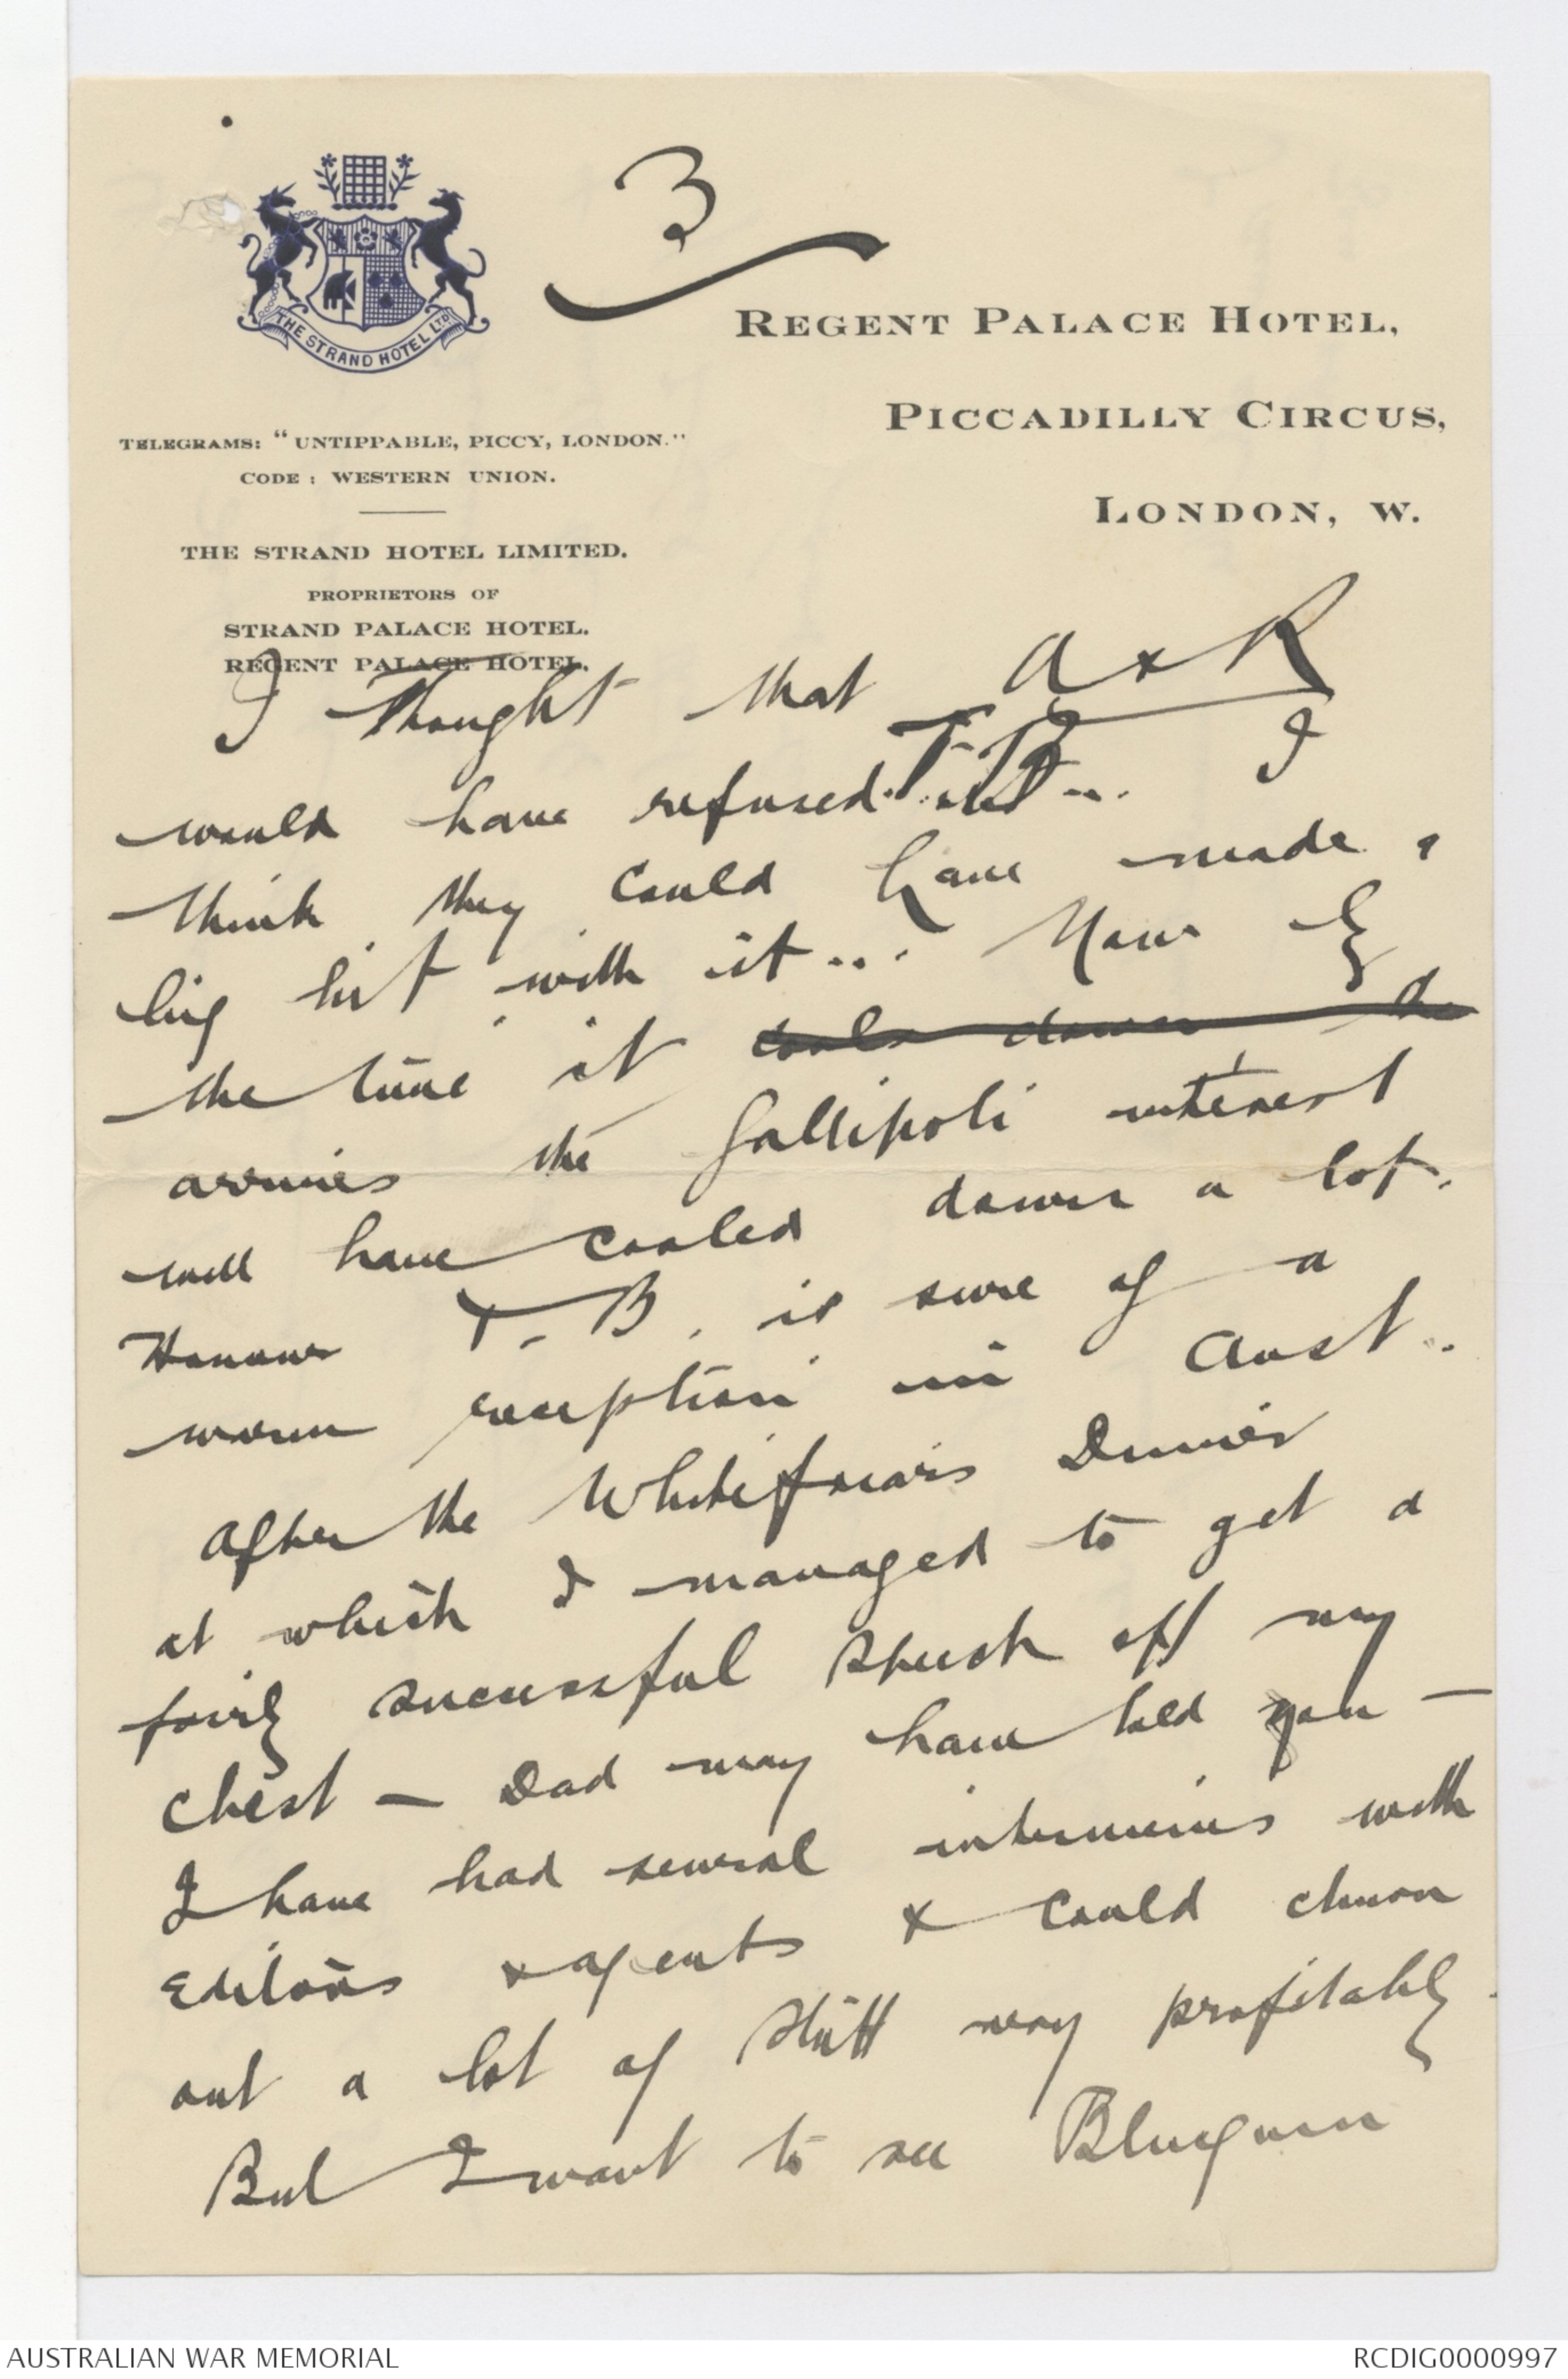 3
THE STRAND HOTEL LTD
REGENT PALACE HOTEL,
PICCADILLY CIRCUS,
LONDON, W.
TELEGRAMS: "UNTIPPABLE, PICCY, LONDON."
CODE: WESTERN UNION.
THE STRAND HOTEL LIMITED.
PROPRIETORS OF
STRAND PALACE HOTEL.
REGENT PALACE HOTEL.
I thought that A & R
would have refused T.B. I
think they could have made a
big hit with it... Now by
the time it cools down the
arrives the Gallipoli interest
will have cooled down a lot.
However T.B. is sure of a
warm reception in Aust..
After the Whitefriars Dinner
at which I managed to get a
fairly successful speech off my
chest — Dad may have told you —
I have had several interviews with
editors & agents & could churn
out a lot of stuff very profitably.
But I want to see Bluegum
AUSTRALIAN WAR MEMORIAL
RCDIG0000997